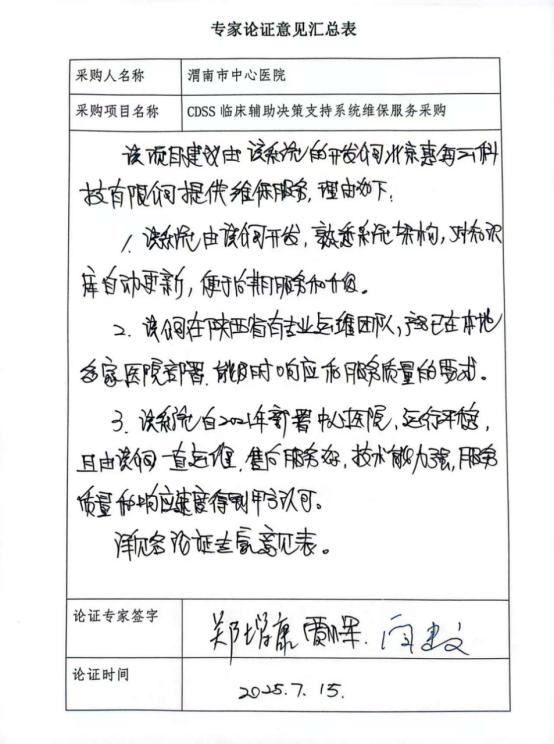 专家论证意见汇总表
采购人名称 渭南市中心医院
采购项目名称 CDSS 临床辅助决策支持系统维保服务采购
该项目建议由该系统的开发公司北京惠每云科
技有限公司提供维保服务,理由如下:
1. 该系统由该公司开发,熟悉系统架构,对知识
库自动更新,便于后期服务和升级。
2. 该公司在陕西省有专业运维团队,产品已在本地
多家医院部署,能及时响应和服务质量的要求。
3. 该系统自2021年部署中心医院,运行平稳,
且由该公司一直运维,售后服务好,技术能力强,服务
质量和响应速度得到甲方认可。
详见各论证专家意见表。
论证专家签字 郑增康
论证时间 2025.7.15.